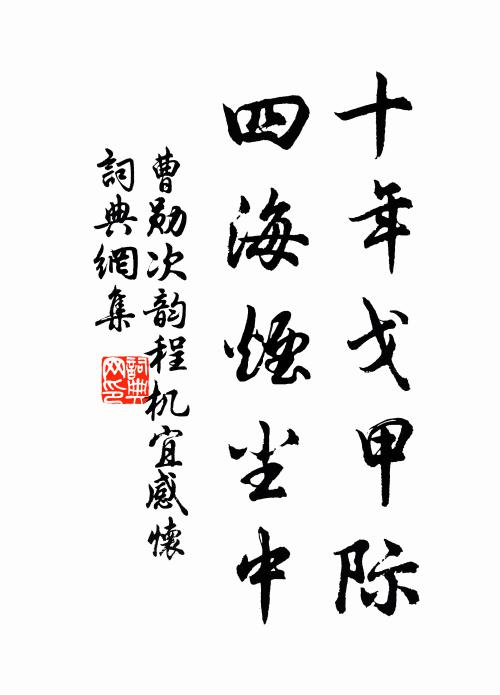 十年戈甲际
四海煙尘中
曹勋次韵程机宜感懷
詞典網集
詞典網印